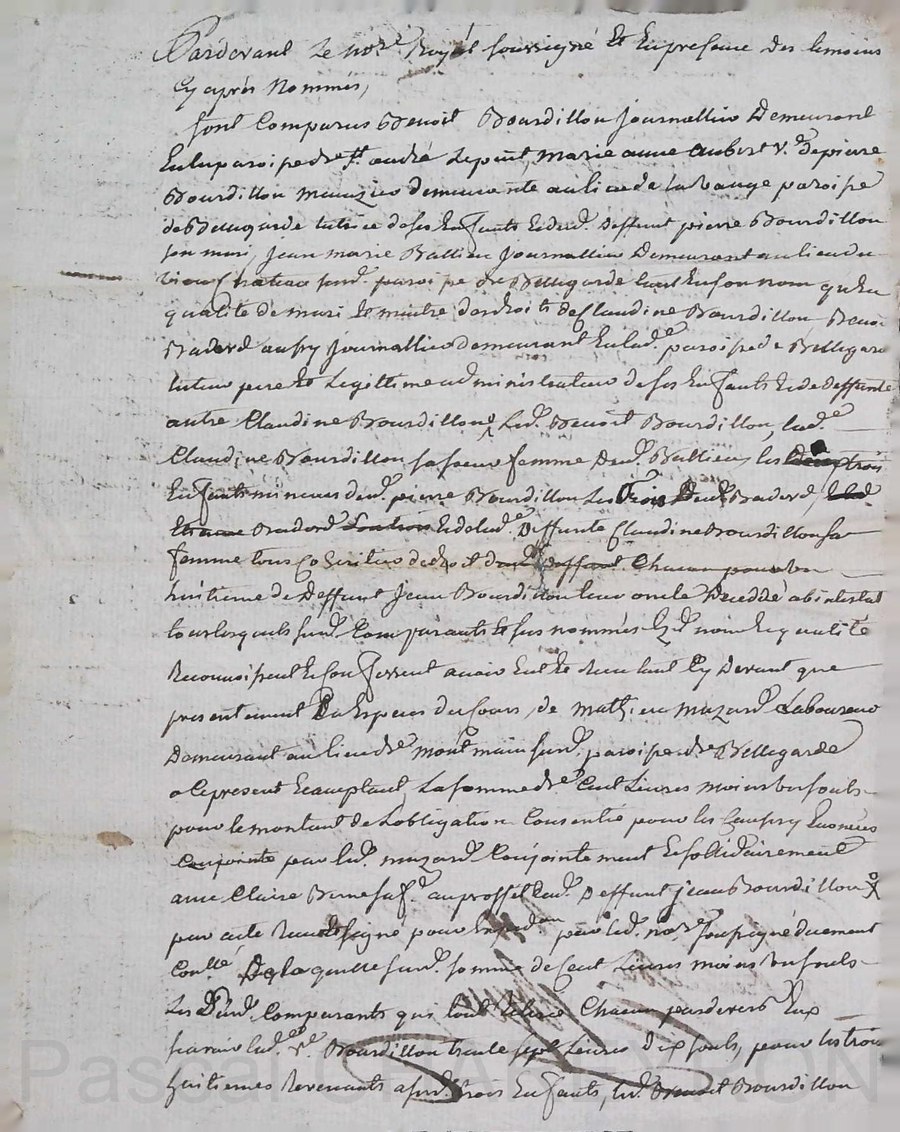 Pardevant Le no.re Royal soussigné Et En presence des temoins
Cy aprés Nommés,
sont Comparus Benoit Bourdillon journallier Demeurant
En la paroisse de st. andré Le puit, marie anne aubert v.e de pierre
Bourdillon demeurante au lieu de la paroisse
de Bellegarde tutrice de ses Enfants Et dud. Deffunt pierre Bourdillon
son mari, jean marie Ballieu journallier Demeurant au lieu du
vieux susd. paroisse de Bellegarde tant En son nom qu'En
qualité de mari Et maitre des droits de Claudine Bourdillon, Benoit
Badord aussy journallier demeurant En lad.e paroisse de Bellegarde
tuteur pere Et Legittime administrateur de ses Enfants Et de deffunte
autre Claudine Bourdillon, Led. Benoit Bourdillon, lad.e
Claudine Bourdillon sa soeur femme dud. Ballieu, les trois
Enfants mineurs dud. pierre Bourdillon Les trois dud. Badord,
Badord Et de lad.e Deffunte Claudine Bourdillon sa
femme tous Coheritiers de droit Chacun pour un
huitieme de Deffunt Jean Bourdillon leur oncle Decedé ab intestat
tous lesquels susd. Comparants Et sus nommés Ez d. nom Et qualité
Reconnoissent Et Confessent avoir Eu Et Recu tant Cy Devant que
presentement En Especes du Cours, de mathieu mazard Laboureur
Demeurant au lieu de mont main susd. paroisse de Bellegarde
a Ce present Et acceptant La somme de Cent Livres moins sols
pour le montant de L'obligation Consentie pour les Causes y Enoncées
Conjointe par led. mazard Conjointement Et sollidairement
avec Claire sa f.e au proffit dud. Deffunt jean Bourdillon
par acte Recu Et signé pour Expedon par led. no.re soussigné duement
Conllé De laquelle susd. somme de Cent Livres moins sols
Les Dits Comparants qui l'ont retiré Chacun pardevers Eux
savoir lad. v.e Bourdillon trente sept Livres Dix sols, pour les trois
huitiemes Revenants a sesd. trois Enfants, led. Benoit Bourdillon
Pascal